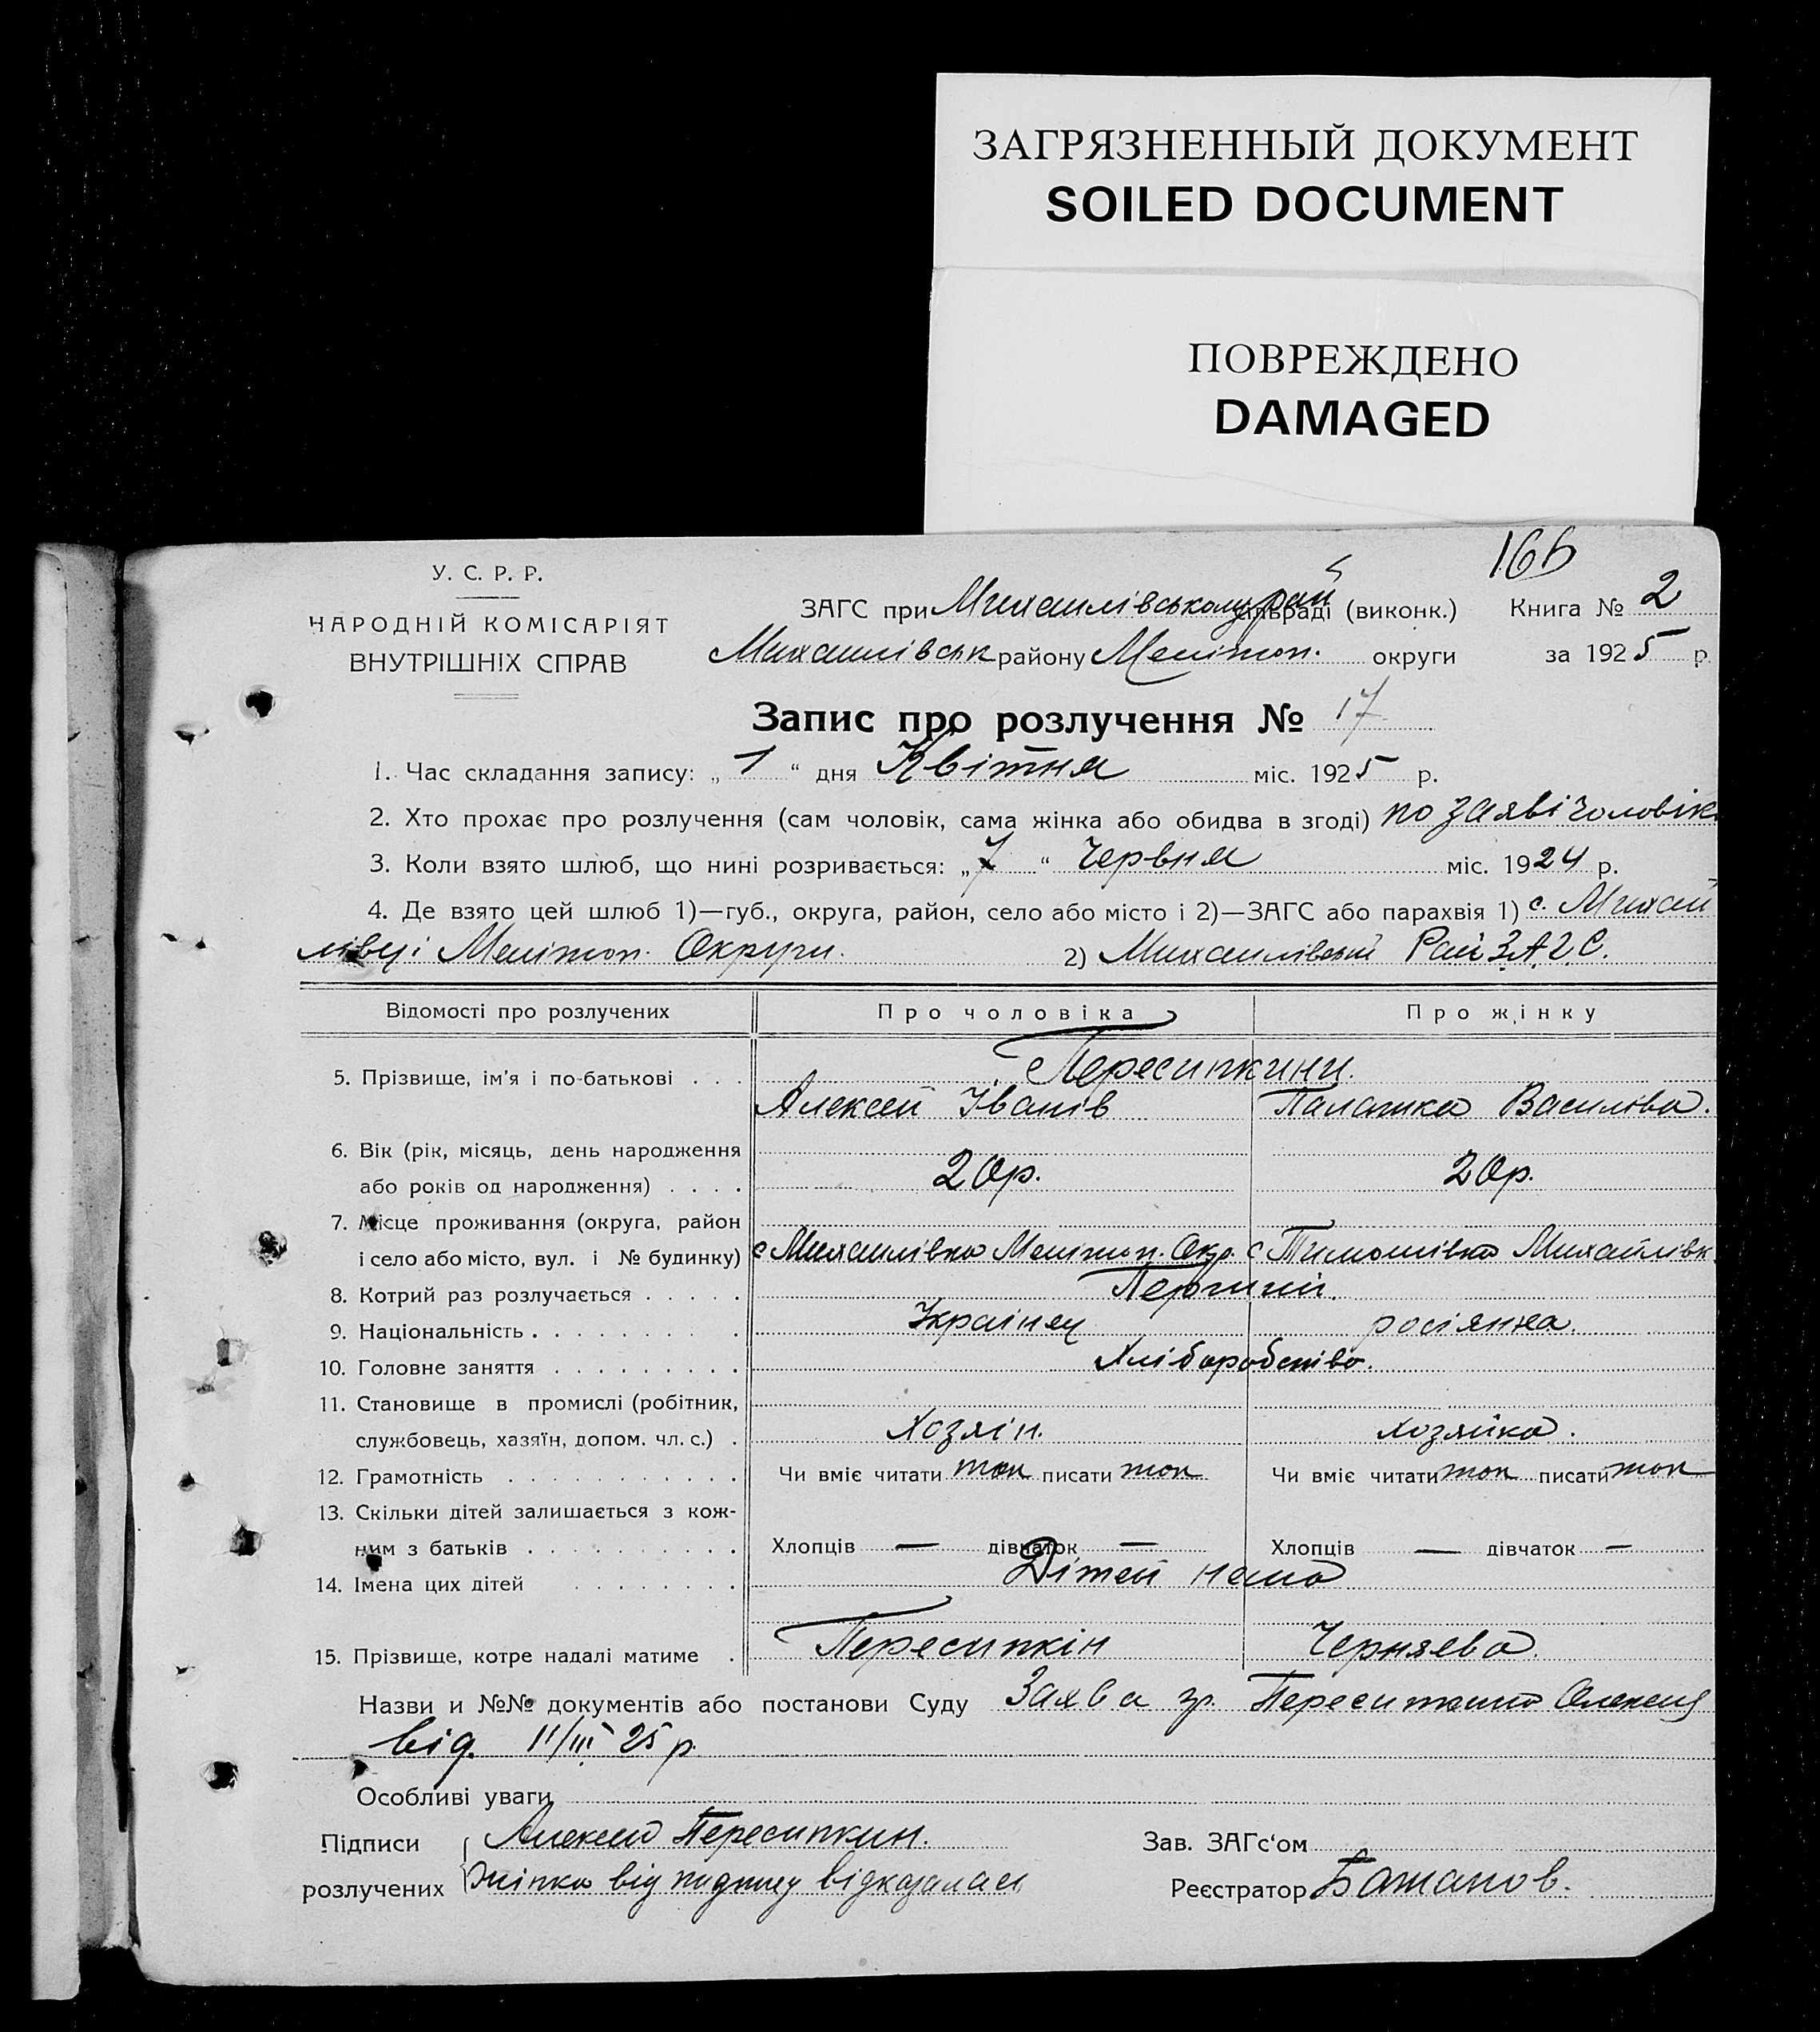 ЗАГРЯЗНЕННЫЙ ДОКУМЕНТ
SOILED DOCUMENT
ПОВРЕЖДЕНО
DAMAGED
166
У. С. Р. Р.
НАРОДНІЙ КОМІСАРІЯТ
ВНУТРІШНІХ СПРАВ
ЗАГС при Михайлівському рай сільраді (виконк.) Книга № 2
Михайлівськ району Мелітоп. округи за 1925 р.
Запис про розлучення № 17
1. Час складання запису: „ 1 “ дня Квітня міс. 1925 р.
2. Хто прохає про розлучення (сам чоловік, сама жінка або обидва в згоді) по заяві чоловік
3. Коли взято шлюб, що нині розривається: „ 7 “ Червня міс. 1924 р.
4. Де взято цей шлюб 1)—губ., округа, район, село або місто і 2)—ЗАГС або парахвія 1) с. Михай
лівці Мелітоп. Округи. 2) Михайлівський Рай З.А.Г.С.
Відомості про розлучених Про чоловіка Про жінку
5. Прізвище, ім'я і по-батькові . . . Пересипкини.
Алексей Іванів Палажка Василіва.
6. Вік (рік, місяць, день народження
або років од народження) . . . . 20р. 20р.
7. Місце проживання (округа, район
і село або місто, вул. і № будинку) с Михайлівка Мелітоп. Окр. с Тимошівка Михайлівк
8. Котрий раз розлучається . . . . . Перший.
9. Національність . . . . . . . . Українец росіянка.
10. Головне заняття . . . . . . . . . Хліборобство.
11. Становище в промислі (робітник,
службовець, хазяїн, допом. чл. с.) . Хозяін. Хозяйка.
12. Грамотність . . . . . . . . . . . Чи вміє читати так писати так Чи вміє читати так писати так
13. Скільки дітей залишається з кож-
ним з батьків . . . . . . . . . . Хлопців — дівчаток — Хлопців — дівчаток —
14. Імена цих дітей . . . . . . . . Дітей нема
15. Прізвище, котре надалі матиме . Пересипкін Черняева.
Назви и №№ документів або постанови Суду Заява гр. Олексія
від. 11/III 25 р.
Особливі уваги
Підписи Алексей Пересипкин. Зав. ЗАГс'ом
розлучених Жінка від підпису відказалась Реєстратор Бажанов.